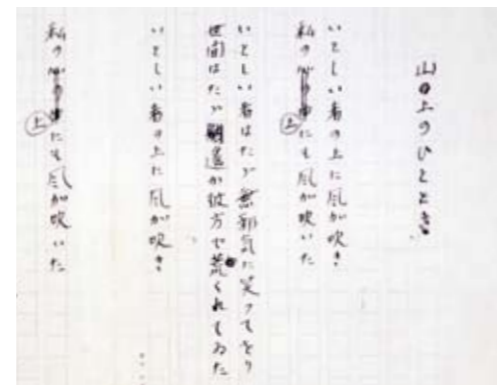 山の上のひととき
いとしい者の上に風が吹き
私の上にも風が吹いた
いとしい者はたゞ無邪気に笑つてをり
世間はたゞ遥か彼方で荒くれてゐた
いとしい者の上に風が吹き
私の上にも風が吹いた